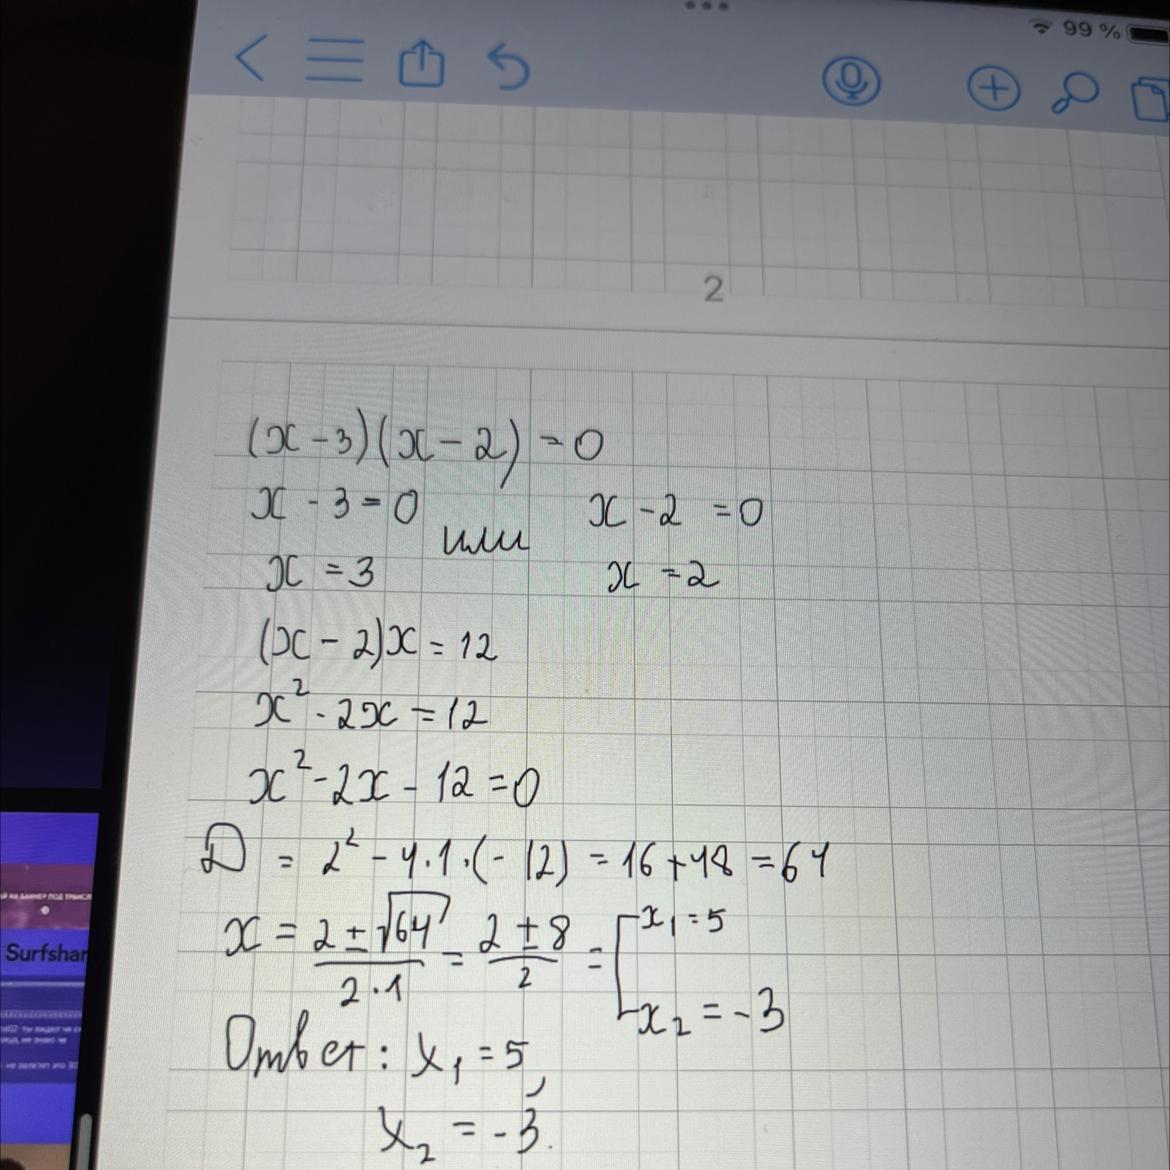 99 %
2
(x - 3)(x - 2) = 0
x - 3 = 0 или x - 2 = 0
x = 3 x = 2
(x - 2)x = 12
x² - 2x = 12
x² - 2x - 12 = 0
D = 2² - 4·1·(-12) = 16 + 48 = 64
x = (2 ± √64)/(2·1) = (2 ± 8)/2 = [x₁ = 5
x₂ = -3
Ответ: x₁ = 5,
x₂ = -3.
Surfshar